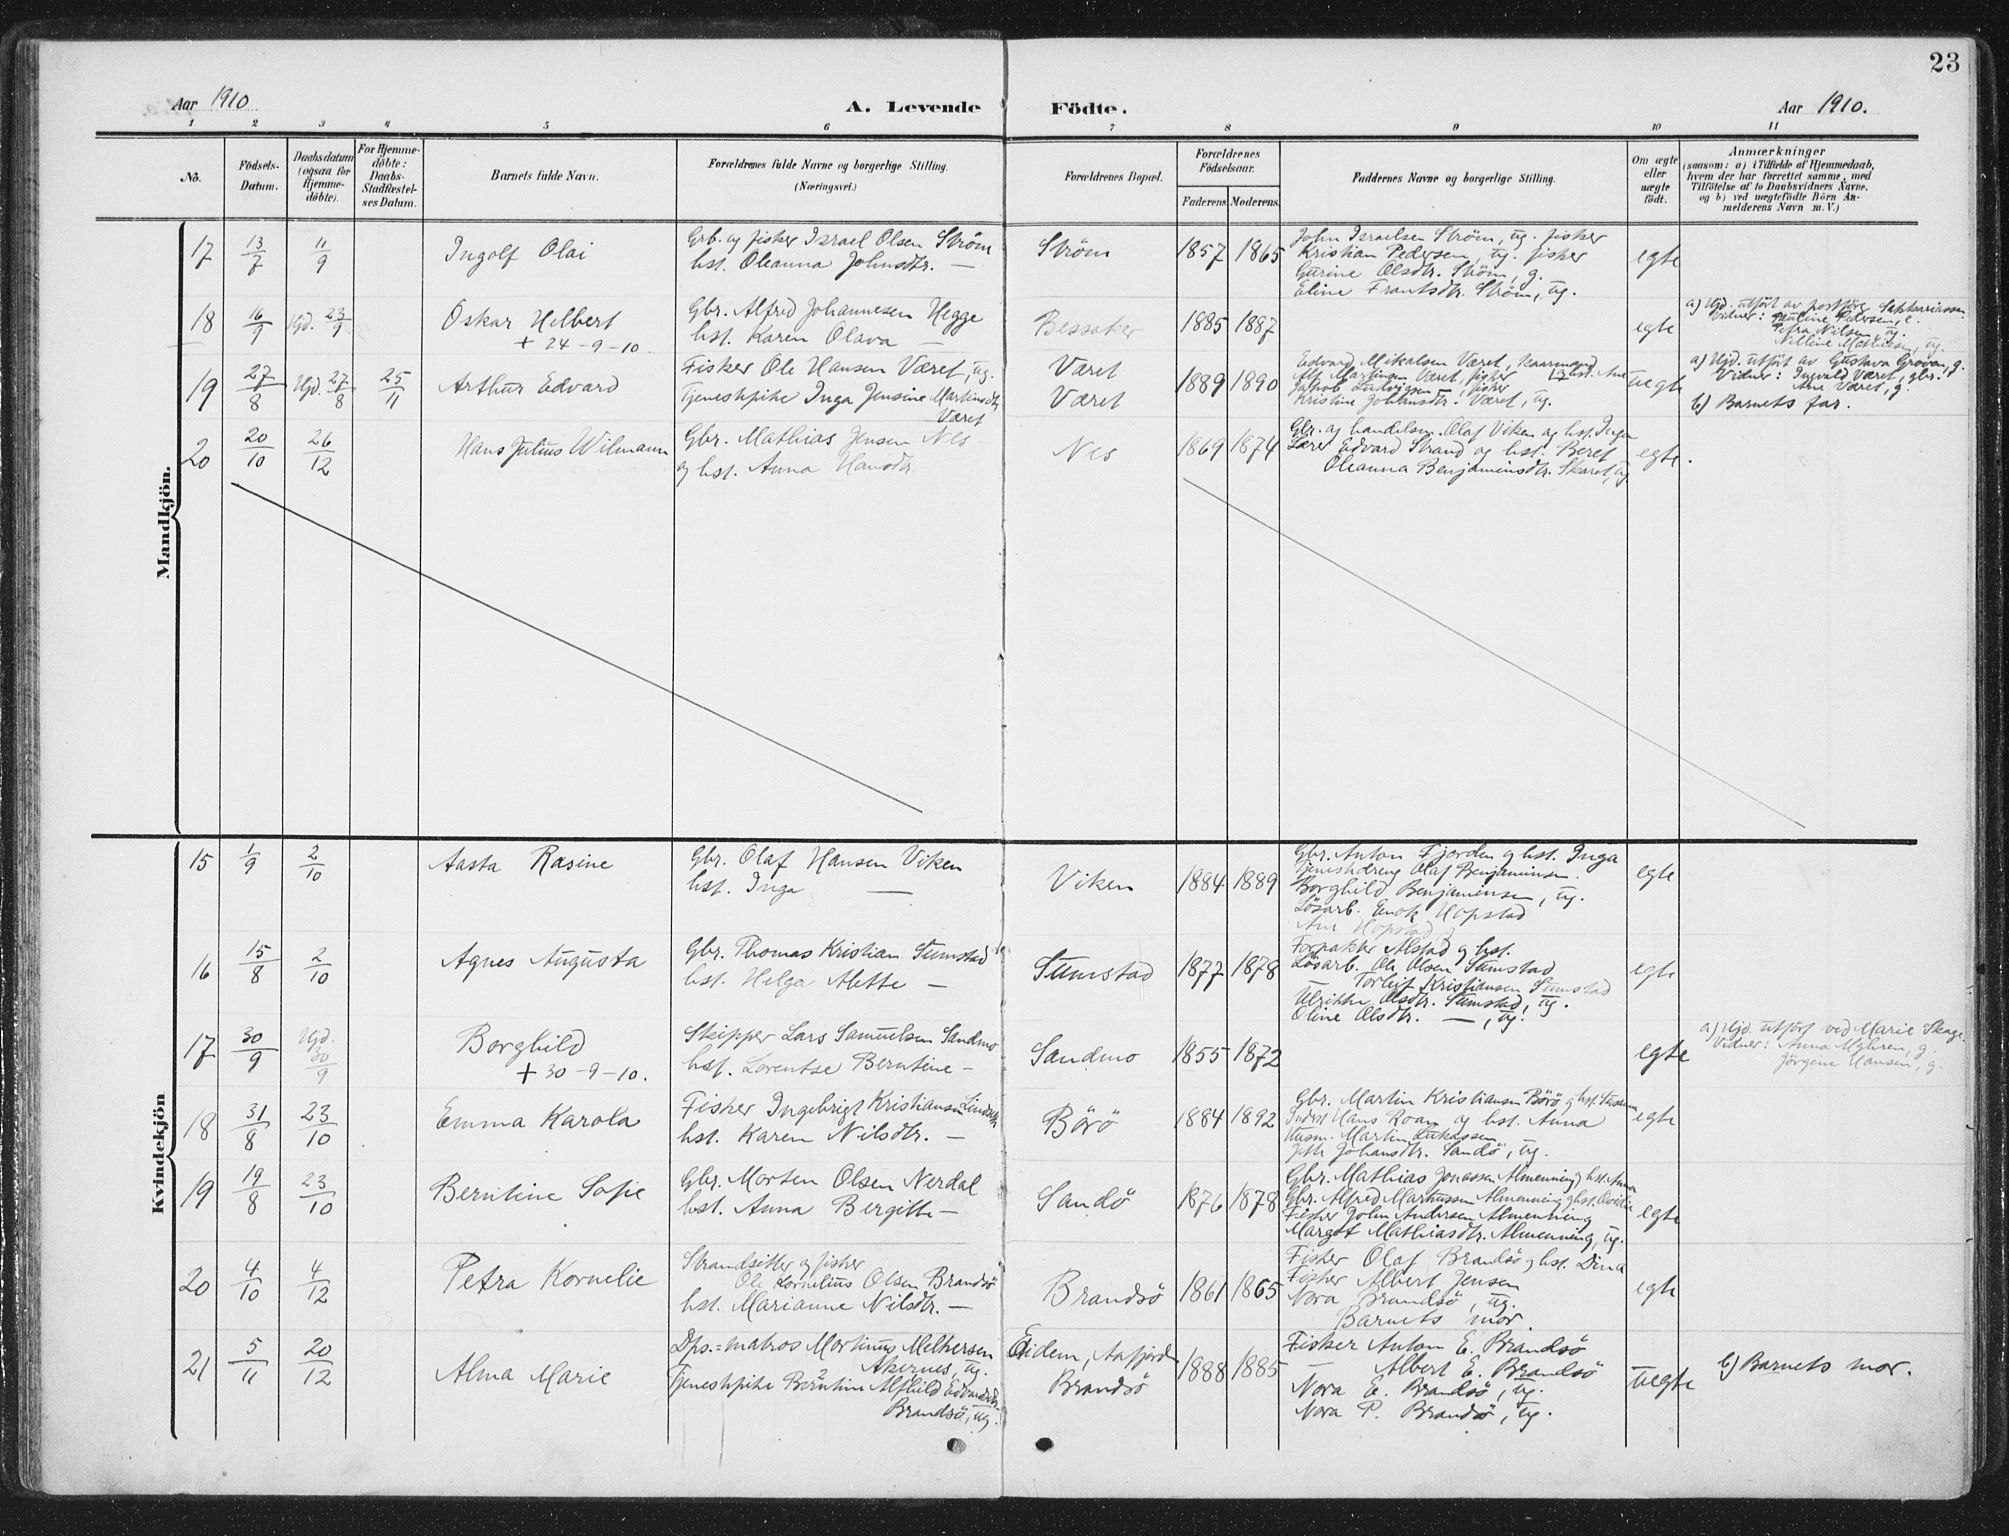 23
Aar 1910
A. Levende
Födte.
Aar 1910.
1 2 3 4 5 6 7 8 9 10 11
No.
Födsels-
Datum.
Daabsdatum
(ogsaa for
Hjemme-
døbte).
For Hjemme-
döbte:
Daabs-
Stadfæstel-
ses Datum.
Barnets fulde Navn.
Forældrenes fulde Navne og borgerlige Stilling.
(Næringsvei.)
Forældrenes Bopæl.
Forældrenes
Födselsaar.
Faderens
Moderens
Faddernes Navne og borgerlige Stilling.
Om ægte
eller
uægte
födt.
Anmærkninger
(saasom: a) i Tilfælde af Hjemmedaab,
hvem der har forrettet samme, med
Tilföielse af to Daabsvidners Navne,
og b) ved uægtefödte Börn An-
melderens Navn m. V.)
Mandkjön.
17 13/7 11/9 Ingolf Olai
Grb. og fisker Israel Olsen Strøm
hst. Oleanna Johnsdtr. —
Strøm 1857 1865
John Israelsen Strøm, ug. fisker
Kristian Pedersen, ug. fisker
Gurine Olsdtr. Strøm, g.
Eline Frantsdtr. Strøm, ug.
egte
18 16/9 Hjd. 23/9 Oskar Helbert
+ 24-9-10.
Gbr. Alfred Johannesen Hegge
hst. Karen Olava —
Bessaker 1885 1887 egte
a) Hjd. utført av postfører Sakkariassen
Vidner: Pauline Pedersen, e.
Petra Nilsen, ug.
Nilline Mathiesen, ug.
19 27/8 Hjd. 27/8 25/11 Arthur Edvard
Fisker Ole Hansen Været, ug.
Tjenestepike Inga Jensine Martinsdtr.
Været
Været
Været
1889 1890
Edvard Mikalsen Været, kaarmand
Alf Martinsen Været, fisker
Jakob Ludvigsen —, fisker
Kristine Johansdtr. Været, ug.
uegte
a) Hjd. utført av Gustava Grøvan, g.
Vidner: Ingvald Været, gbr.
Ane Været, g.
b) Barnets far.
20 20/10 26/12 Hans Julius Wilmann
Gbr. Mathias Jensen Nes
og hst. Anna Hansdtr.
Nes 1869 1874
Gbr. og handelsm. Olaf Viken og hst. Inga
Lærer Edvard Strand og hst. Beret
Oleanna Benjaminsdtr. Skaret, ug.
egte.
Kvindekjön
15 1/9 2/10 Aasta Rasine
Gbr. Olaf Hansen Viken
hst. Inga —
Viken 1884 1889
Gbr. Anton Fjorden og hst. Inga
Tjenestedreng Olaf Benjaminsen.
Borghild Benjaminsen, ug.
Løsarb. Enok Hopstad
Ane Hopstad
egte
16 15/8 2/10 Agnes Augusta
Gbr. Thomas Kristian Sumstad
hst. Helga Alette —
Sumstad 1877 1878
Forpakter Alstad og hst.
Løsarb. Ole Olsen Sumstad
Torleif Kristiansen Sumstad
Ulrikke Olsdtr. Sumstad, ug.
Oline Olsdtr. —, ug.
egte
17 30/9 Hjd. 30/9 Borghild
+ 30-9-10.
Skipper Lars Samuelsen Sandmo
hst. Lorentse Berntine —
Sandmo 1855 1872 egte
a) Hjd. utført ved Marie Skage.
Vidner: Anna Myhren, g.
Jørgine Hansen, g.
18 31/8 23/10 Emma Karola
Fisker Ingebrigt Kristiansen
hst. Karen Nilsdtr. —
Børø 1884 1892
Gbr. Martin Kristiansen Børø og hst. Susanna
Inderst Hans Roan og hst. Anna
Husm. Martin Lukassen
Jette Johansdtr. Sandø, ug.
egte
19 19/8 23/10 Berntine Sofie
Gbr. Morten Olsen Nerdal
hst. Anna Bergitte —
Sandø 1876 1878
Gbr. Mathias Jonassen Almenning og hst. Anna
Gbr. Alfred Markussen Almenning og hst. Ovidie
Fisker John Andersen Almenning
Margot Mathiasdtr. Almenning, ug.
egte
20 4/10 4/12 Petra Kornelie
Strandsitter og fisker
Ole Kornelius Olsen Brandsø
hst. Marianne Nilsdtr. —
Brandsø 1861 1865
Fisker Olaf Brandsø og hst. Dina
Fisker Albert Jensen
Nora Brandsø, ug.
Barnets mor.
egte
21 5/11 20/12 Alma Marie
Dps.=matros Martinus Melkersen
Akernes, ug.
Tjenestepike Berntine Alfhild Edvardsdtr.
Brandsø, ug.
Eidem, Aafjord
Brandsø
1888 1885
Fisker Anton E. Brandsø
— Albert E. Brandsø
Nora E. Brandsø, ug.
Nora P. Brandsø, ug.
uegte
b) Barnets mor.